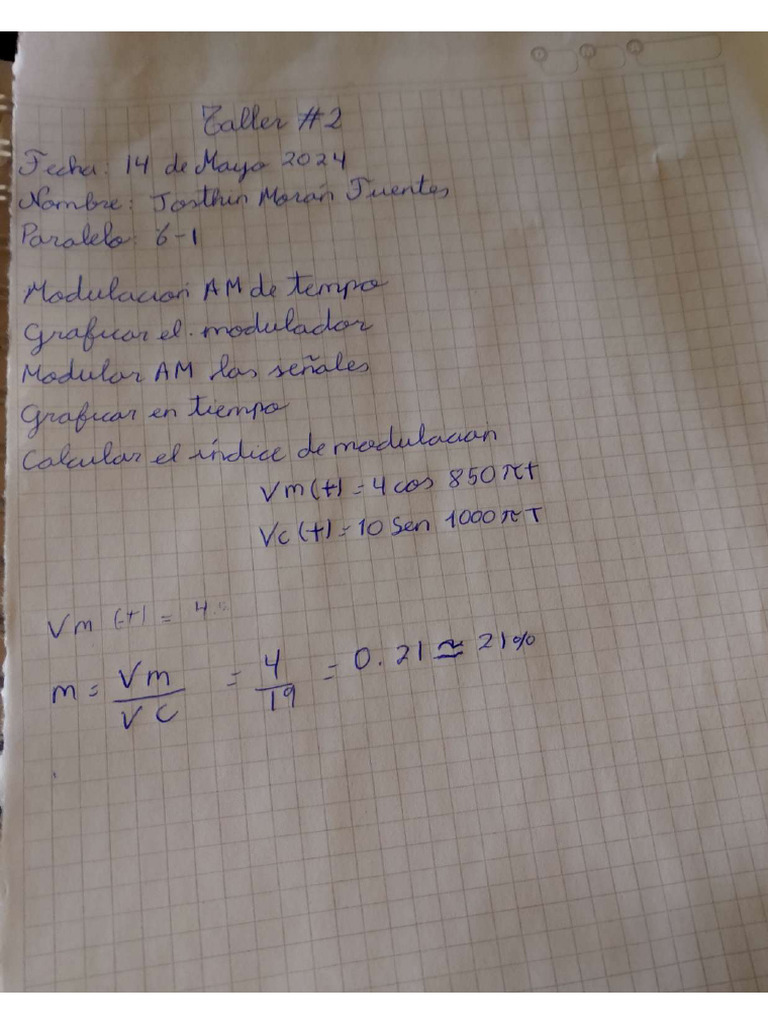 Taller #2
Fecha: 14 de Mayo 2024
Nombre: Josthin Morán Fuentes
Paralelo: 6-1
Modulacion AM de tiempo
Graficar el modulador
Modular AM las señales
Graficar en tiempo
Calcular el índice de modulacion
Vm(t) = 4 cos 850πt
Vc(t) = 10 Sen 1000πT
Vm (t) = 4
m = Vm / VC = 4 / 19 = 0.21 ≅ 21%